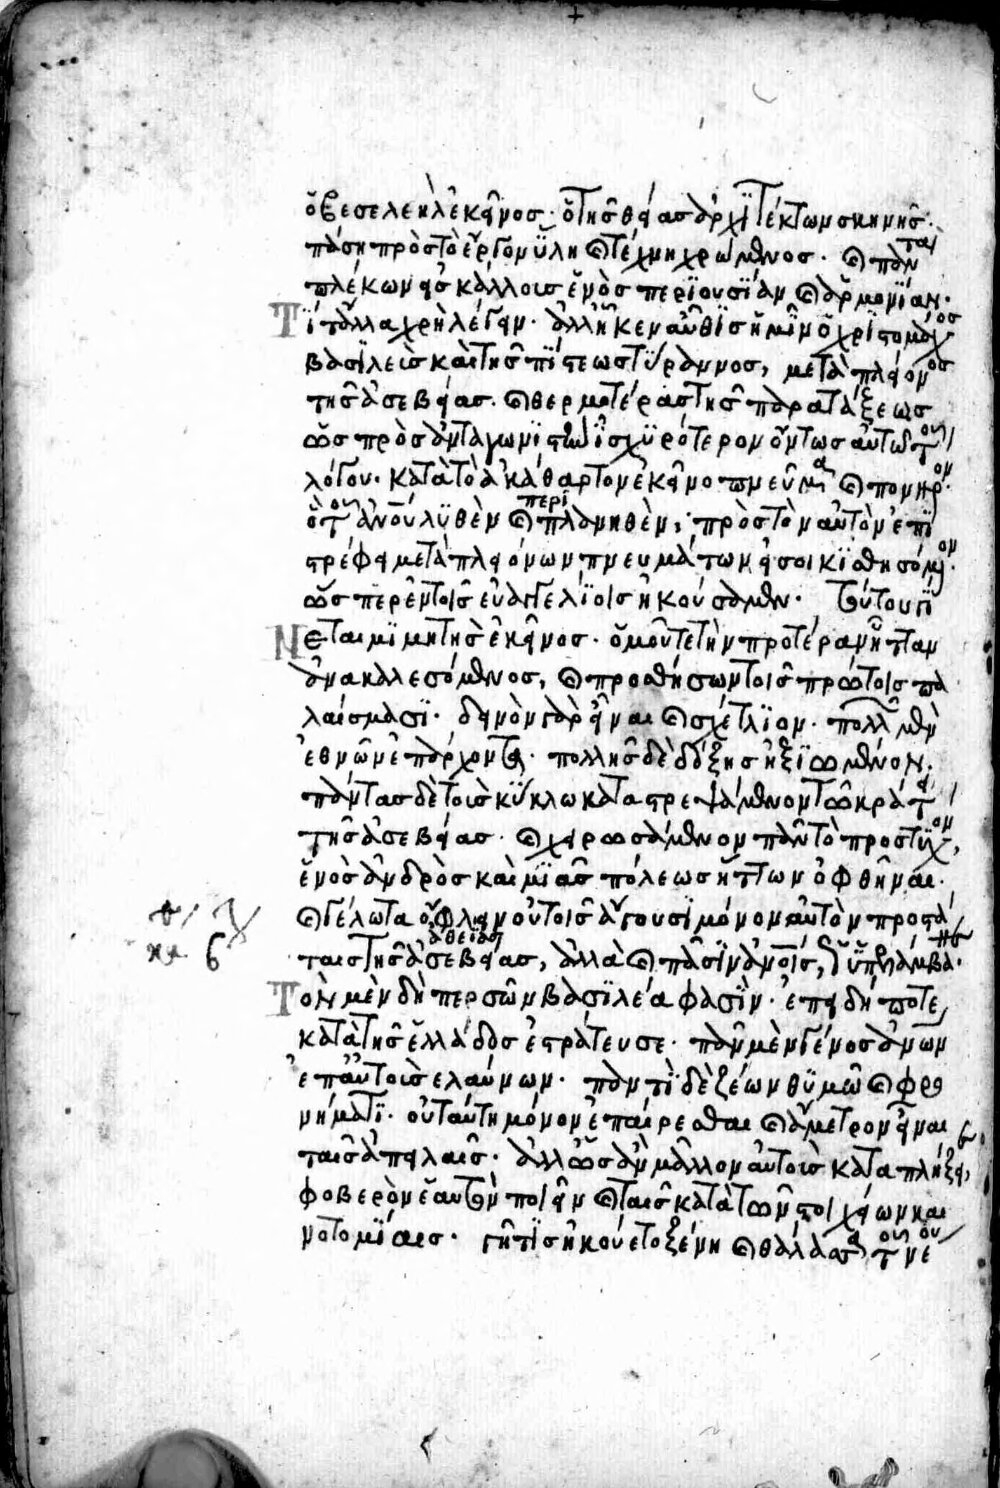 ὁ βεσελεὴλ ἐκεῖνος· ὁ τῆς θείας ἀρχιτέκτων σκηνῆς·
πάσῃ πρὸς τὸ ἔργον ὕλῃ καὶ τέχνῃ χρώμενος· καὶ πάντα
πλέκων εἰς κάλλους ἑνὸς περιουσίαν καὶ ἁρμονίαν·
Τί τἆλλα χρὴ λέγειν· ἀλλ' ἧκεν αὖθις ἡμῖν ὁ χριστομάχος
βασιλεὺς καὶ τῆς πίστεως τύραννος, μετὰ πλείονος
τῆς ἀσεβείας· καὶ θερμοτέρας τῆς παρατάξεως
ὡς πρὸς ἀνταγωνιστὴν ἰσχυρότερον ὄντως αὐτῷ τοῦ
λόγου· κατὰ τὸ ἀκάθαρτον ἐκεῖνο πνεῦμα καὶ πονηρόν·
ὃ τοῦ ἀνοῦ λυθὲν καὶ περιπλανηθὲν, πρὸς τὸν αὐτὸν ἐπι
στρέφει μετὰ πλειόνων πνευμάτων εἰσοικισθησόμενον·
ὥσπερ ἐν τοῖς εὐαγγελίοις ἠκούσαμεν· τούτου γί
Νεται μιμητὴς ἐκεῖνος· ὁμοῦ τε τὴν προτέραν ἧτταν
ἀνακαλεσόμενος, καὶ προσθήσων τοῖς πρώτοις πα
λαίσμασι· δεινὸν γὰρ εἶναι καὶ σχέτλιον· πολλῶν μὲν
ἐθνῶν ἐπάρχοντα· πολλῆς δὲ δόξης ἠξιωμένον·
πάντας δὲ τοὺς κύκλῳ καταστρεψάμενον τῷ κράτει
τῆς ἀσεβείας· καὶ χειρωσάμενον πᾶν τὸ προστυχόν,
ἑνὸς ἀνδρὸς καὶ μιᾶς πόλεως ἥττων ὀφθῆναι·
καὶ γέλωτα ὀφλεῖν οὐ τοῖς ἄγουσι μόνον αὐτὸν προστά
ταις τῆς ἀσεβείας, ἀλλὰ καὶ πᾶσιν ἀνοῖς, ὡς ὑπελάμβανε·
Τὸν μὲν δὴ περσῶν βασιλέα φασὶν· ἐπειδή ποτε
κατὰ τῆς ἑλλάδος ἐστράτευσε· πᾶν μὲν γένος ἀνων
ἐπ' αὐτοὺς ἐλαύνων· παντὶ δὲ ζέων θυμῷ καὶ φρο
νήματι· οὐ ταύτῃ μόνον ἐπαίρεσθαι καὶ ἄμετρον εἶναι
ταῖς ἀπειλαῖς· ἀλλ' ὡς ἂν μᾶλλον αὐτοὺς καταπλήξειε,
φοβερὸν ἑαυτὸν ποιεῖν καὶ ταῖς κατὰ τῶν στοιχείων και
νοτομίαις· γῆ τις ἠκούετο ξένη καὶ θάλασσα τοῦ νέου